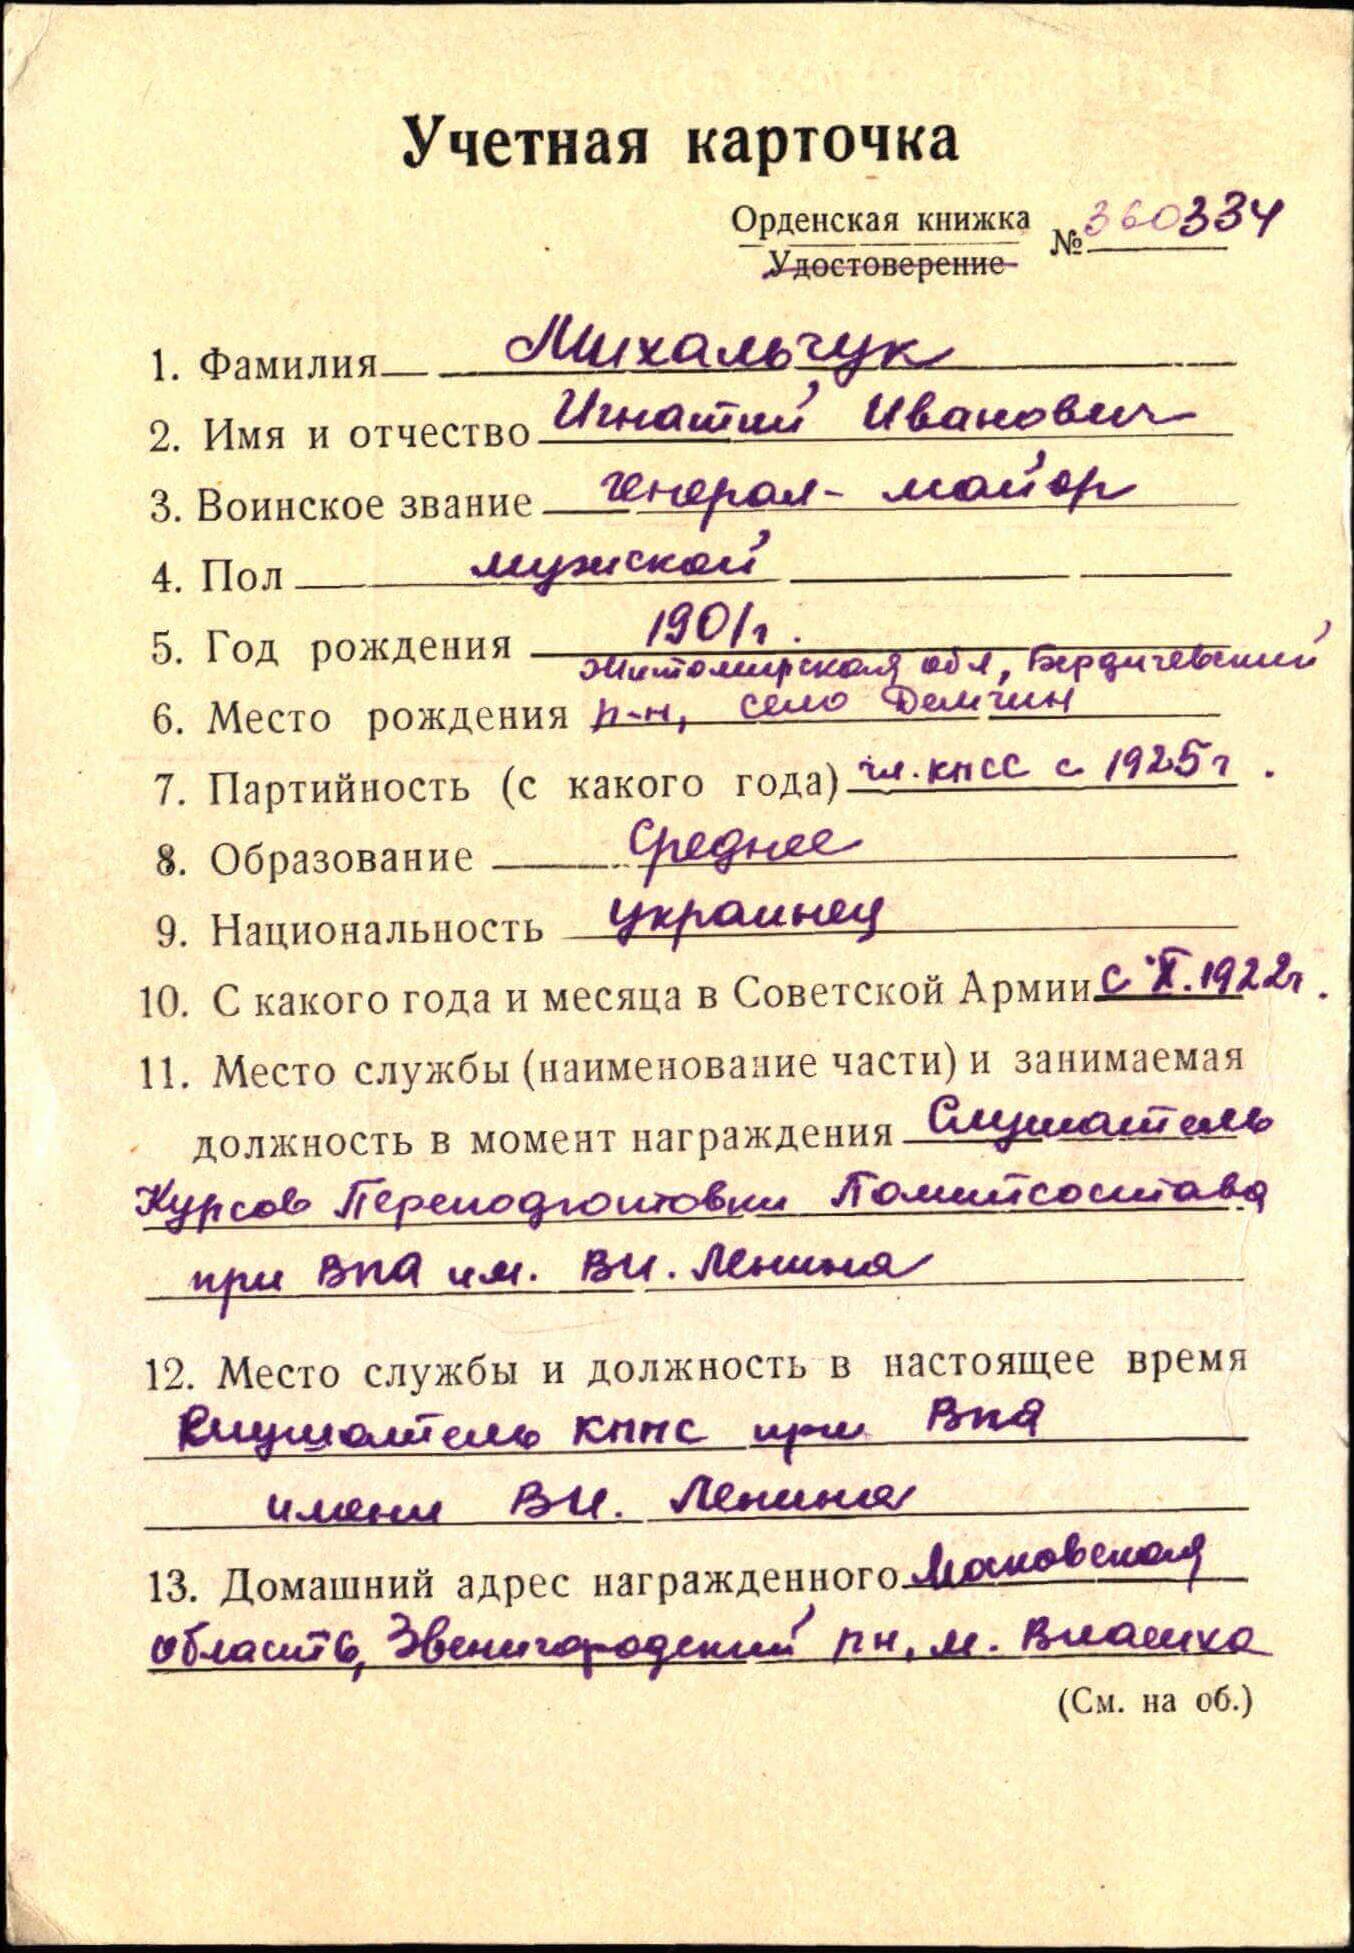 Учетная карточка
Орденская книжка № 360334
Удостоверение
1. Фамилия Михальчук
2. Имя и отчество Игнатий Иванович
3. Воинское звание генерал-майор
4. Пол мужской
5. Год рождения 1901г.
Житомирская обл, Бердичевский
6. Место рождения р-н, село Демчин
7. Партийность (с какого года) чл. КПСС с 1925г.
8. Образование Среднее
9. Национальность украинец
10. С какого года и месяца в Советской Армии с X.1922г.
11. Место службы (наименование части) и занимаемая
должность в момент награждения Слушатель
Курсов Переподготовки Политсостава
при ВПА им. В.И. Ленина
12. Место службы и должность в настоящее время
Слушатель КППС при ВПА
имени В.И. Ленина
13. Домашний адрес награжденного Московская
область, Звенигородский рн, м. Власиха
(См. на об.)